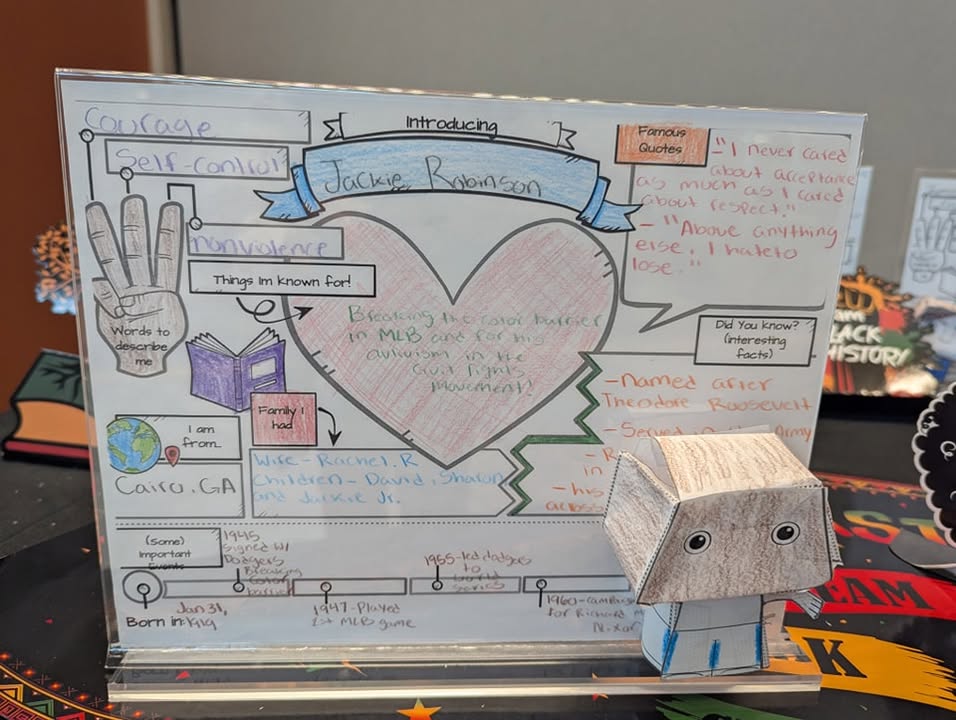 Courage
Self-control
nonviolence
Words to
describe
me
Introducing
Jackie Robinson
Things Im known for!
Breaking the color barrier
in MLB and for his
autivism in the
Civil rights
Movement!
Famous
Quotes
-"I never cared
about acceptance
as much as I cared
about respect."
- "Above anything
else, I hate to
lose."
Did You know?
(interesting
facts)
-Named after
Theodore Roosevelt
- Served in the Army
in
- his
across
Family I
had
Wife - Rachel. R
Children - David, Sharon
and Jackie Jr.
I am
from..
Cairo, GA
(Some)
Important
Events
Born in:
Jan 31,
1919
1945
Signed W/
Dodgers
Breaking
Color
barrier
1947-Played
1st MLB game
1955-led dodgers
to
world
series
1960-campaign
for Richard M
Nixon
BLACK
HISTORY